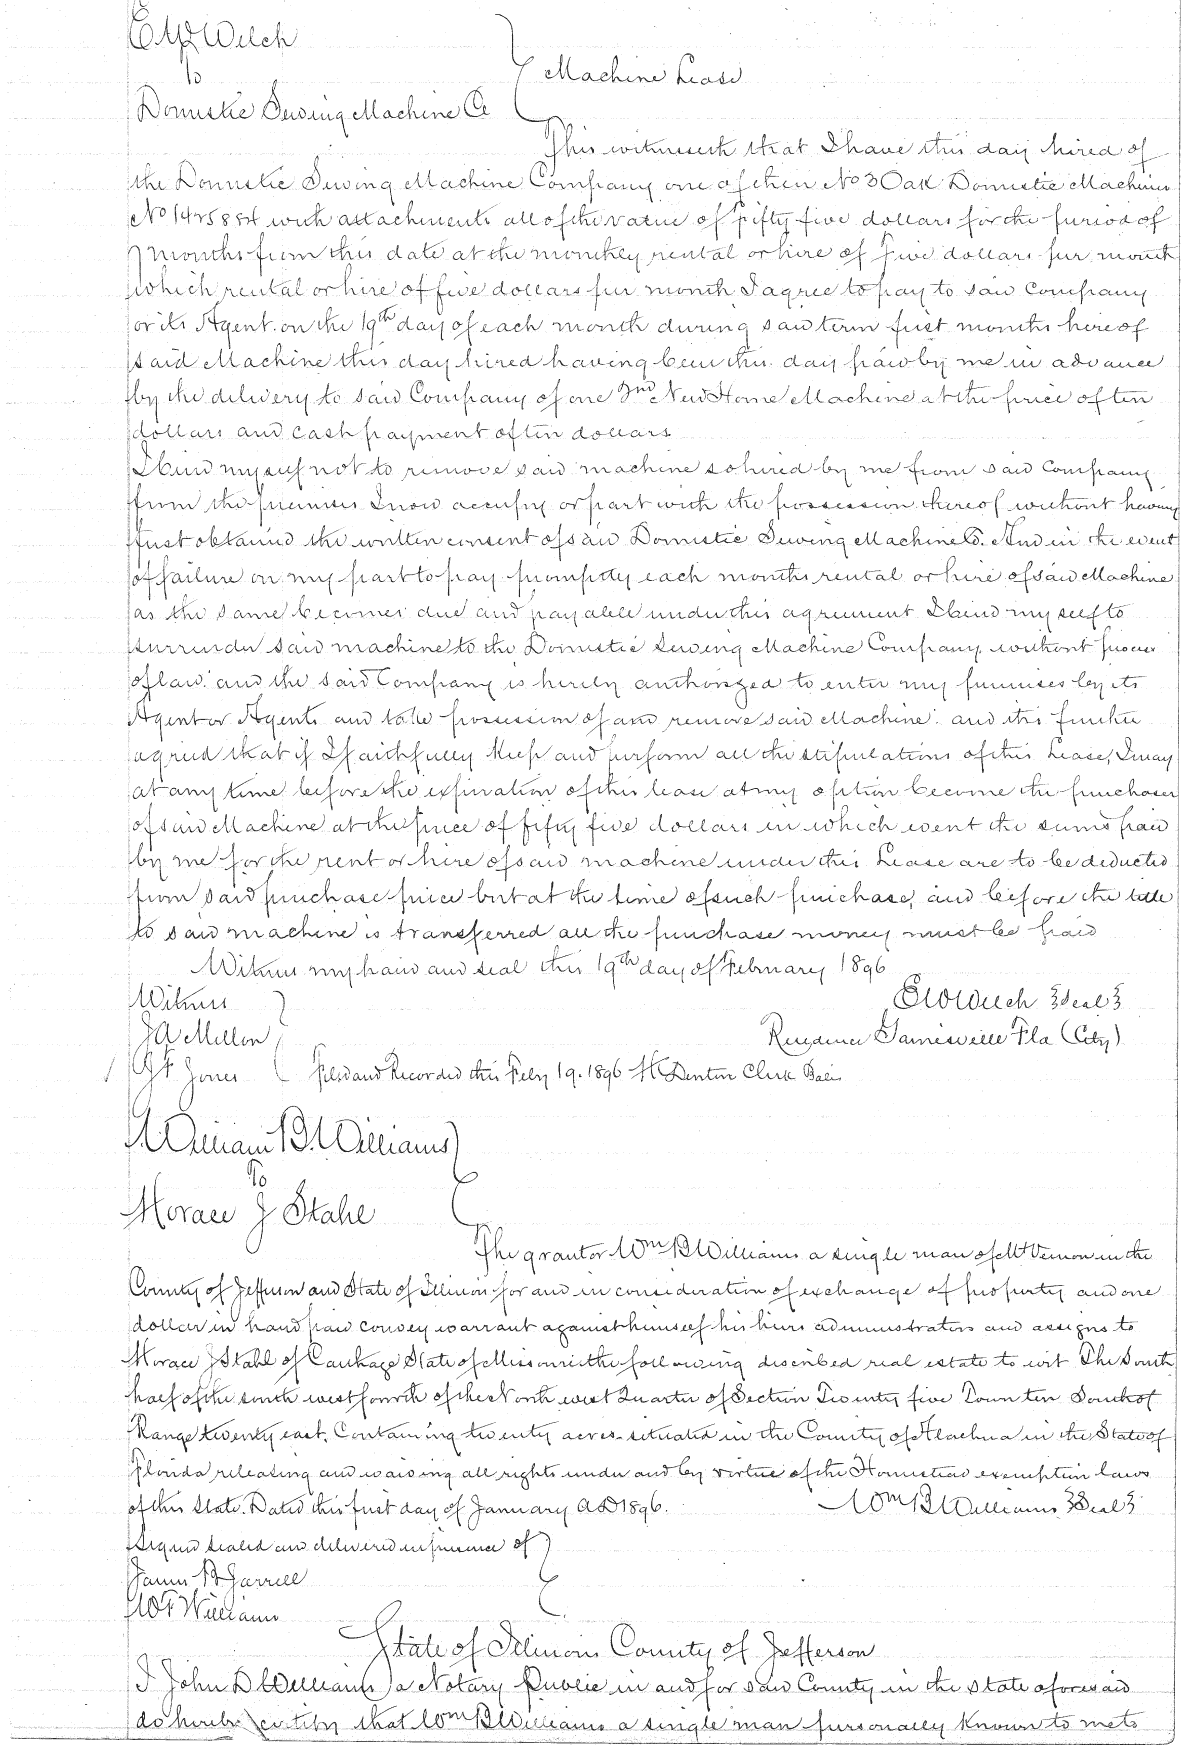 E W Welch
to
Machine Lease
Domestic Sewing Machine Co
This witnesseth that I have this day hired of
the Domestic Sewing Machine Company one of their No 3 Oak Domestic Machines
No with attachments all of the value of fifty five dollars for the period of
7 months from this date at the monthly rental or hire of five dollars per month
which rental or hire of five dollars per month I agree to pay to said Company
or its Agent on the 19th day of each month during said term first months hire of
said Machine this day hired having been this day paid by me in advance
by the delivery to said Company of one 2nd New Home Machine at the price of ten
dollars and cash payment of ten dollars
I bind myself not to remove said machine so hired by me from said Company
from the premises I now occupy or part with the possession thereof without having
first obtained the written consent of said Domestic Sewing Machine Co. And in the event
of failure on my part to pay promptly each months rental or hire of said Machine
as the same becomes due and payable under this agreement I bind my self to
surrender said machine to the Domestic Sewing Machine Company without process
of law. and the said Company is hereby authorized to enter my premises by its
Agent or Agents and take possession of and remove said Machine. and it is further
agreed that if I faithfully keep and perform all the stipulations of this Lease, I may
at any time before the expiration of this lease at my option become the purchaser
of said Machine at the price of fifty five dollars in which event the sums paid
by me for the rent or hire of said machine under this Lease are to be deducted
from said purchase price but at the time of such purchase, and before the title
to said machine is transferred all the purchase money must be paid
Witness my hand and seal this 19th day of February 1896
Witness E W Welch {Seal}
J A Mellon Residence Gainesville Fla (City)
G F Jones Filed and Recorded this Feby 19. 1896 H Denton Clerk
William B. Williams
To
Horace J Stahl
The grantor Wm B Williams a single man of Mt Vernon in the
County of Jefferson and State of Illinois for and in consideration of exchange of property and one
dollar in hand paid convey warrant against himself his heirs administrators and assigns to
Horace J Stahl of Carthage State of Missouri the following discribed real estate to wit The South
half of the south west fourth of the North west Quarter of Section Twenty five Town ten South of
Range twenty east. Containing twenty acres situated in the County of Alachua in the State of
Florida releasing and waiving all rights under and by virtue of the Homestead exemption laws
of this State. Dated this first day of January A D 1896. Wm B Williams {Seal}
Signed sealed and delivered in presence of
James B Jarrell
W F Williams
State of Illinois County of Jefferson
I John D Williams a Notary Public in and for said County in the State aforesaid
do hereby certify that Wm B Williams a single man personally known to me to